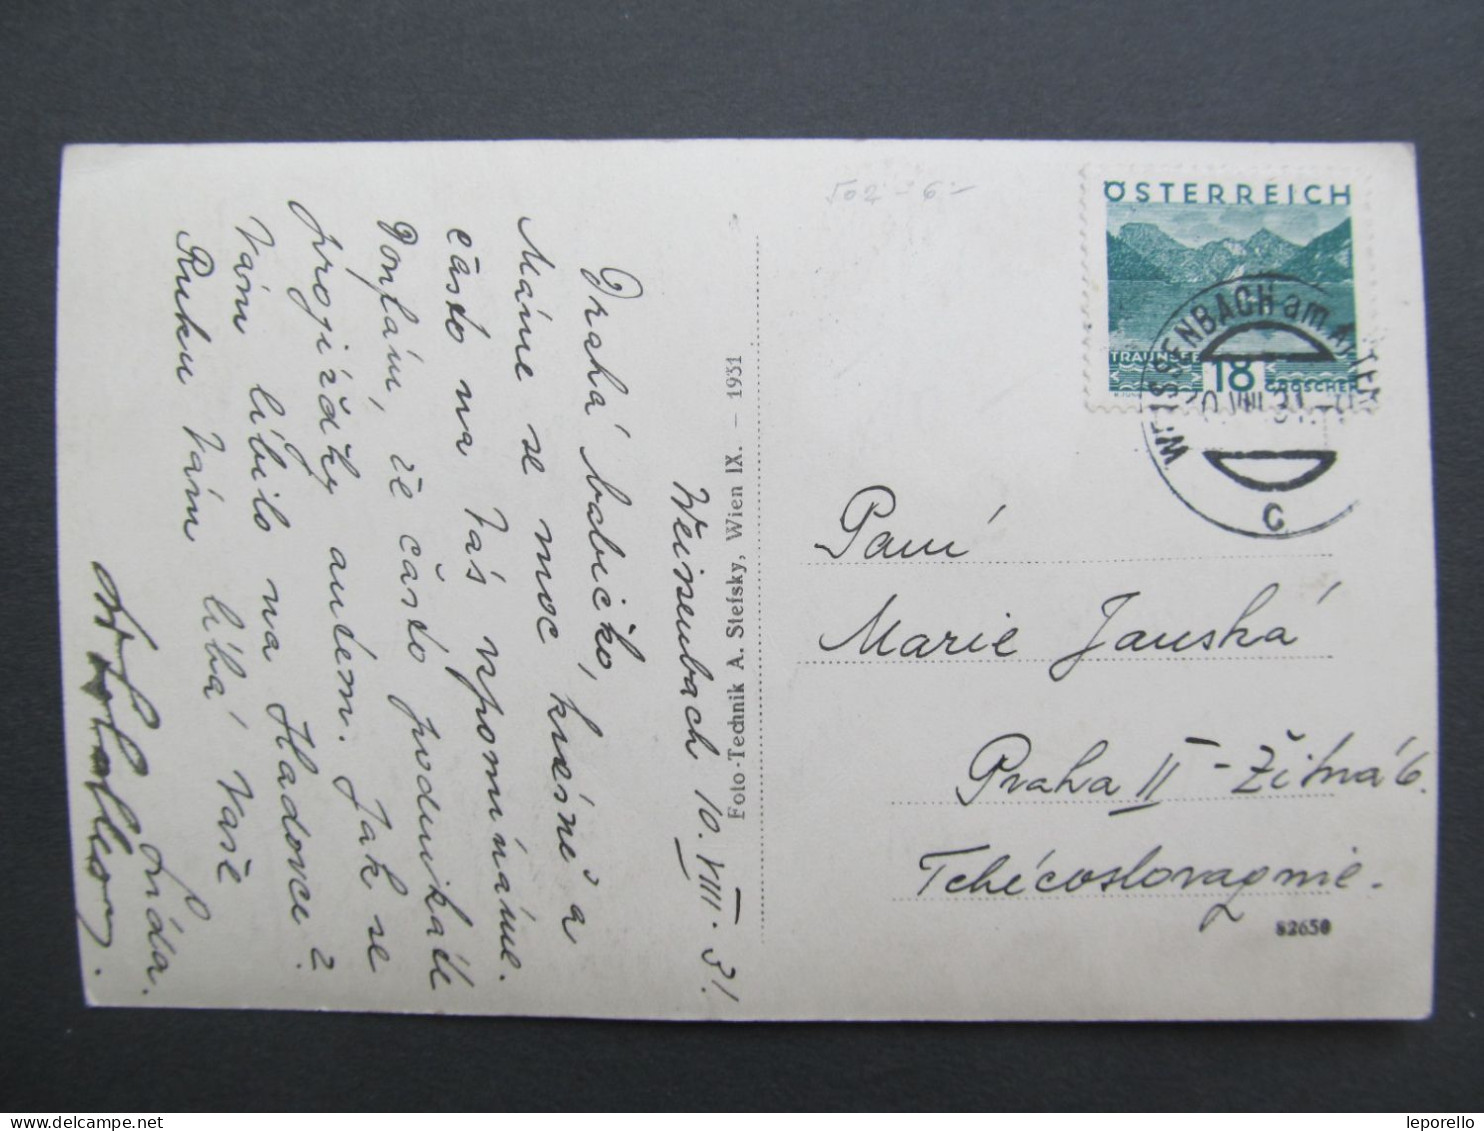 Weissenbach 10. VIII. 31.
Drahá babičko,
Máme se moc krásně a
často na Vás vzpomínáme.
Doufám, že často podnikáte
projížďky autem. Jak se
Vám líbilo na Hladovce?
Ruku Vám líbá Vaše
Lída.
Foto-Technik A. Stefsky, Wien IX. – 1931
502 - 6 -
ÖSTERREICH
TRAUNSEE
18 GROSCHEN
WEISSENBACH am ATTER
10. VIII. 31
C
Paní
Marie Janská
Praha II - Žitná 6.
Tchécoslovaquie.
82650
www.delcampe.net
leporello